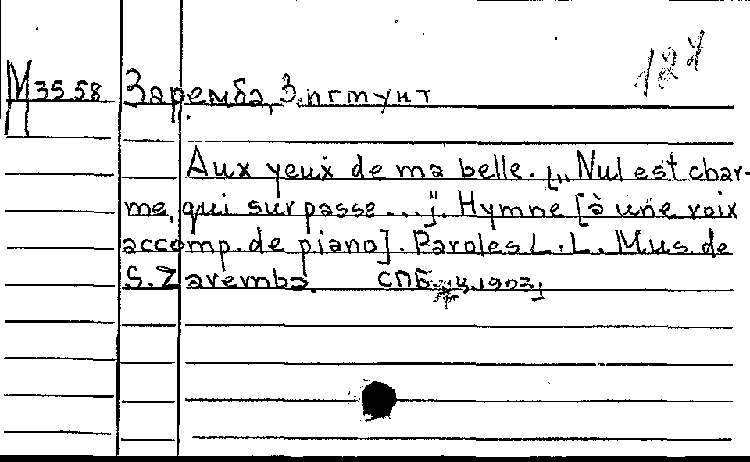 127
М 35 58 Зарембa, Зигмунт
Aux yeux de ma belle. [„Nul est char-
me, qui surpasse...“]. Hymne [à une voix
accomp. de piano]. Paroles L. L. Mus. de
S. Zaremba. СПБ 1903